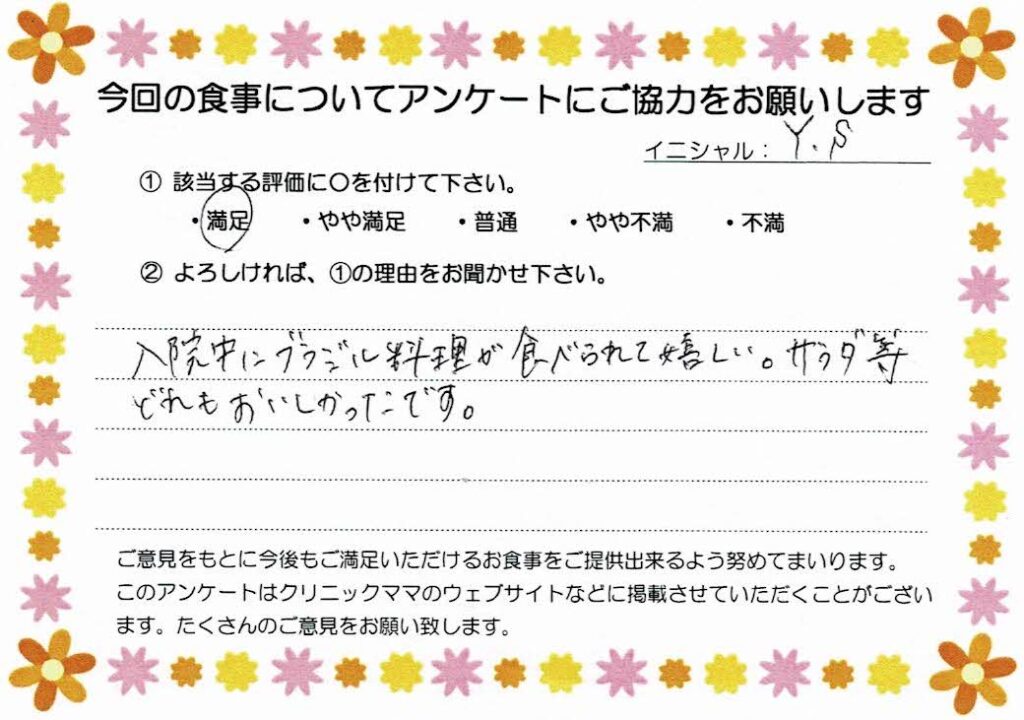 今回の食事についてアンケートにご協力をお願いします
イニシャル： Y.S
① 該当する評価に〇を付けて下さい。
・満足 ・やや満足 ・普通 ・やや不満 ・不満
② よろしければ、①の理由をお聞かせ下さい。
入院中にブラジル料理が食べられて嬉しい。サラダ等
どれもおいしかったです。
ご意見をもとに今後もご満足いただけるお食事をご提供出来るよう努めてまいります。
このアンケートはクリニックママのウェブサイトなどに掲載させていただくことがござい
ます。たくさんのご意見をお願い致します。